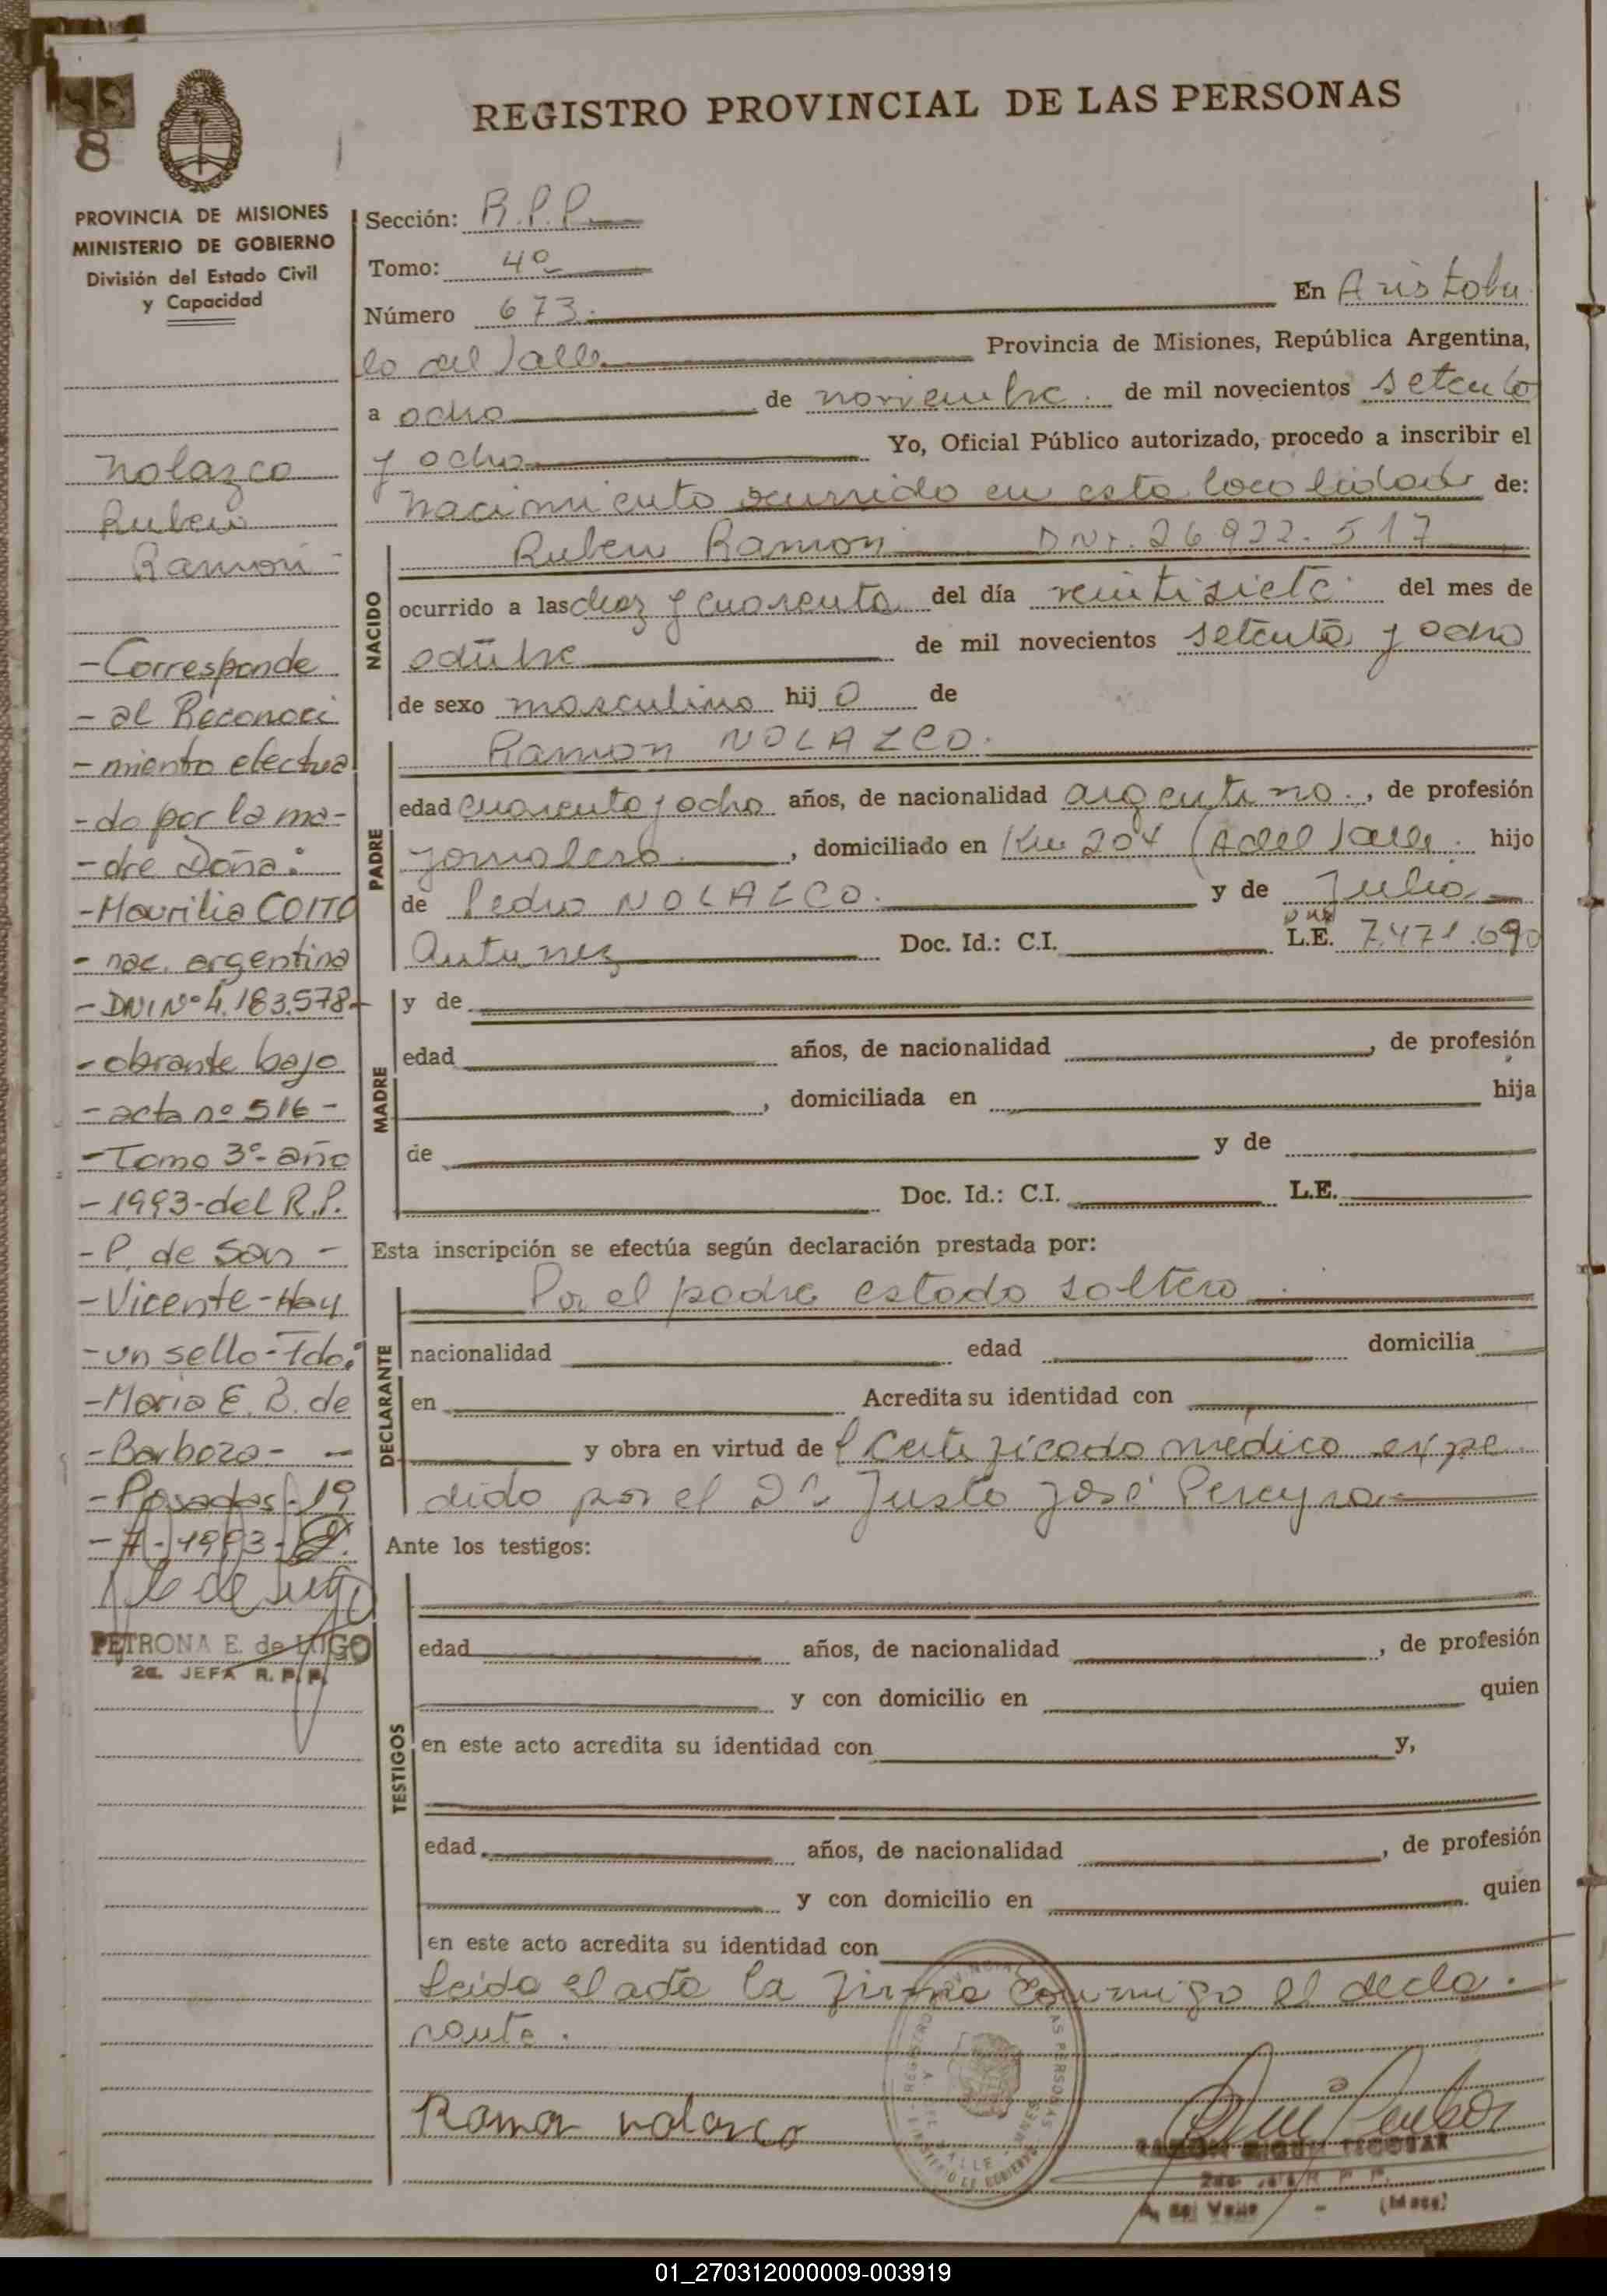 REGISTRO PROVINCIAL DE LAS PERSONAS
8
PROVINCIA DE MISIONES
MINISTERIO DE GOBIERNO
División del Estado Civil
y Capacidad
Nolazco
Ruben
Ramon
- Corresponde
- al Reconoci
- miento efectua
- do por la ma-
- dre Doña:
- Maurilia COITO
- nac. argentina
- DNI Nº 4.183.578-
- obrante bajo
- acta nº 516 -
- Tomo 3º- año
- 1993-del R.P.
- P. de San -
- Vicente - Hay
- un sello - Fdo:
- Maria E. B. de
- Barboza - -
- Posadas, 19
- 7 - 1993 -
PETRONA E. de LUGO
2a. JEFA R. P. P.
Sección: R.P.P.
Tomo: 4º
Número 673. En Aristobu
lo del Valle Provincia de Misiones, República Argentina,
a ocho de noviembre. de mil novecientos setenta
y ocho Yo, Oficial Público autorizado, procedo a inscribir el
nacimiento ocurrido en esta localidad de:
NACIDO
Ruben Ramon DNI. 26.922.517
ocurrido a las diez y cuarenta del día veintisiete del mes de
octubre de mil novecientos setenta y ocho
de sexo masculino hij o de
PADRE
Ramon NOLAZCO.
edad cuarenta y ocho años, de nacionalidad argentino., de profesión
jornalero , domiciliado en Km 204 (A del Valle. hijo
de Pedro NOLAZCO. y de Julia
Antunez Doc. Id.: C.I. L.E. DNI 7.471.690
MADRE
y de
edad años, de nacionalidad , de profesión
, domiciliada en hija
de y de
Doc. Id.: C.I. L.E.
Esta inscripción se efectúa según declaración prestada por:
DECLARANTE
Por el padre estado soltero
nacionalidad edad domicilia
en Acredita su identidad con
y obra en virtud de l Certificado medico expe
dido por el Dr. Justo José Pereyra
Ante los testigos:
TESTIGOS
edad años, de nacionalidad , de profesión
y con domicilio en quien
en este acto acredita su identidad con y,
edad años, de nacionalidad , de profesión
y con domicilio en quien
en este acto acredita su identidad con
Leido el acta la firma conmigo el decla.
rante.
Ramon nolazco
RAMON MIGUEL ESCOBAR
2do. Jefe R. P. P.
A. del Valle - (Mnes)
01_270312000009-003919